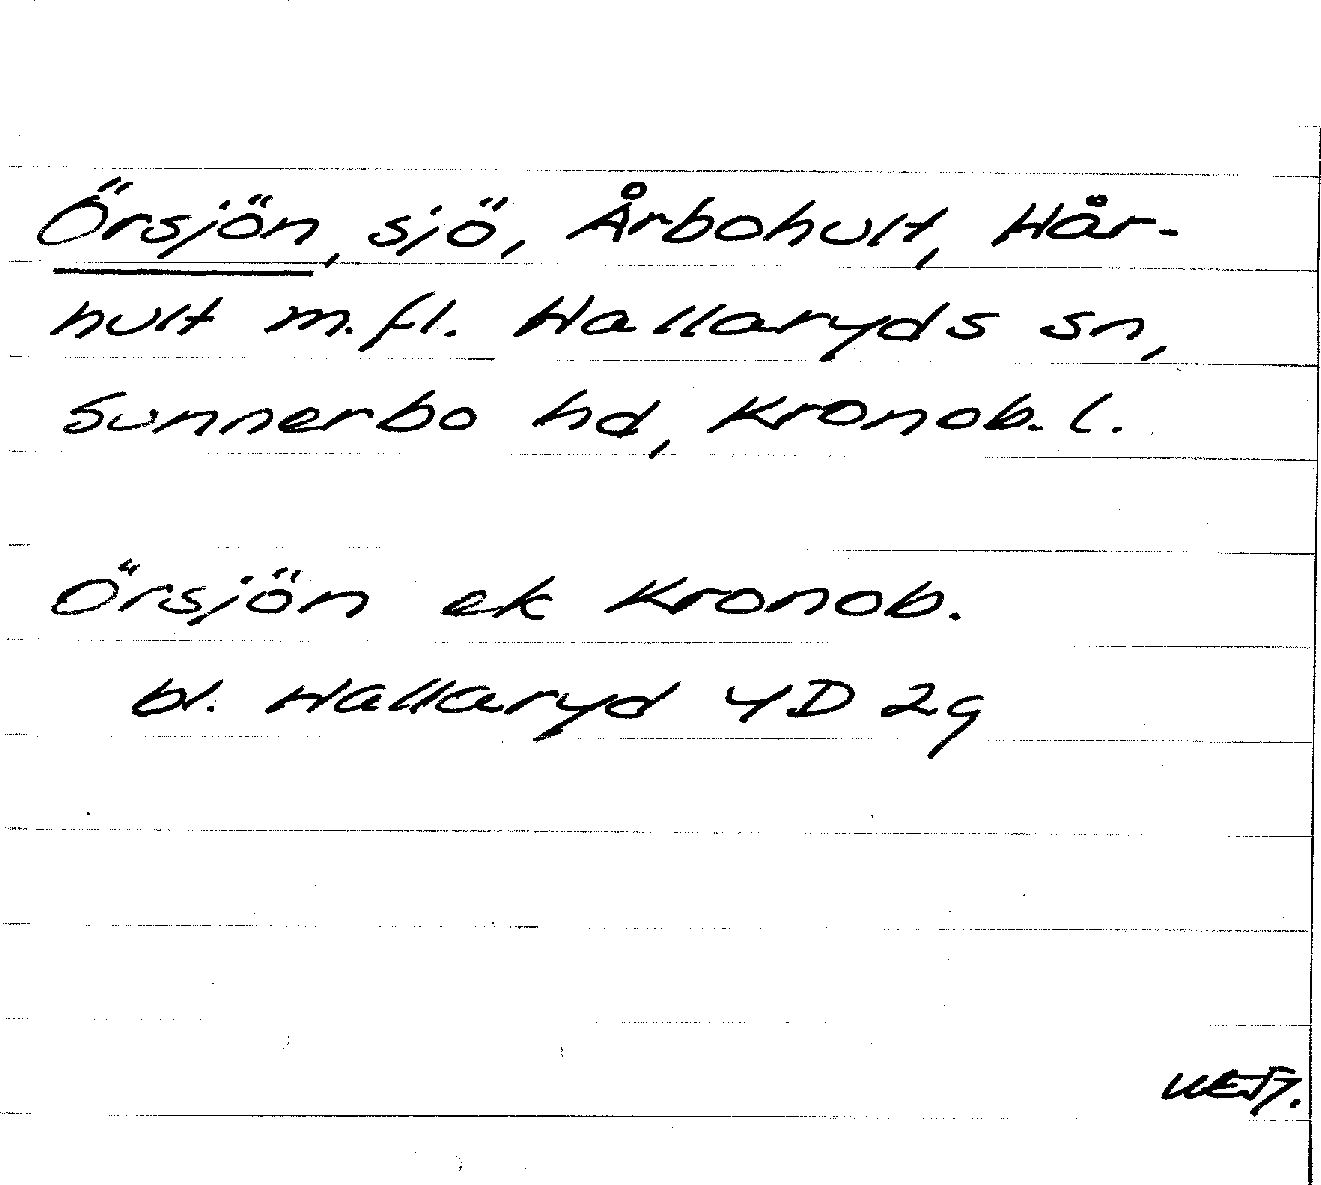 Örsjön, sjö, Årbohult, Hår-
hult m.fl. Hallaryds sn,
Sunnerbo hd, Kronob. l.
Örsjön ek Kronob.
bl. Hallaryd 4D 2g